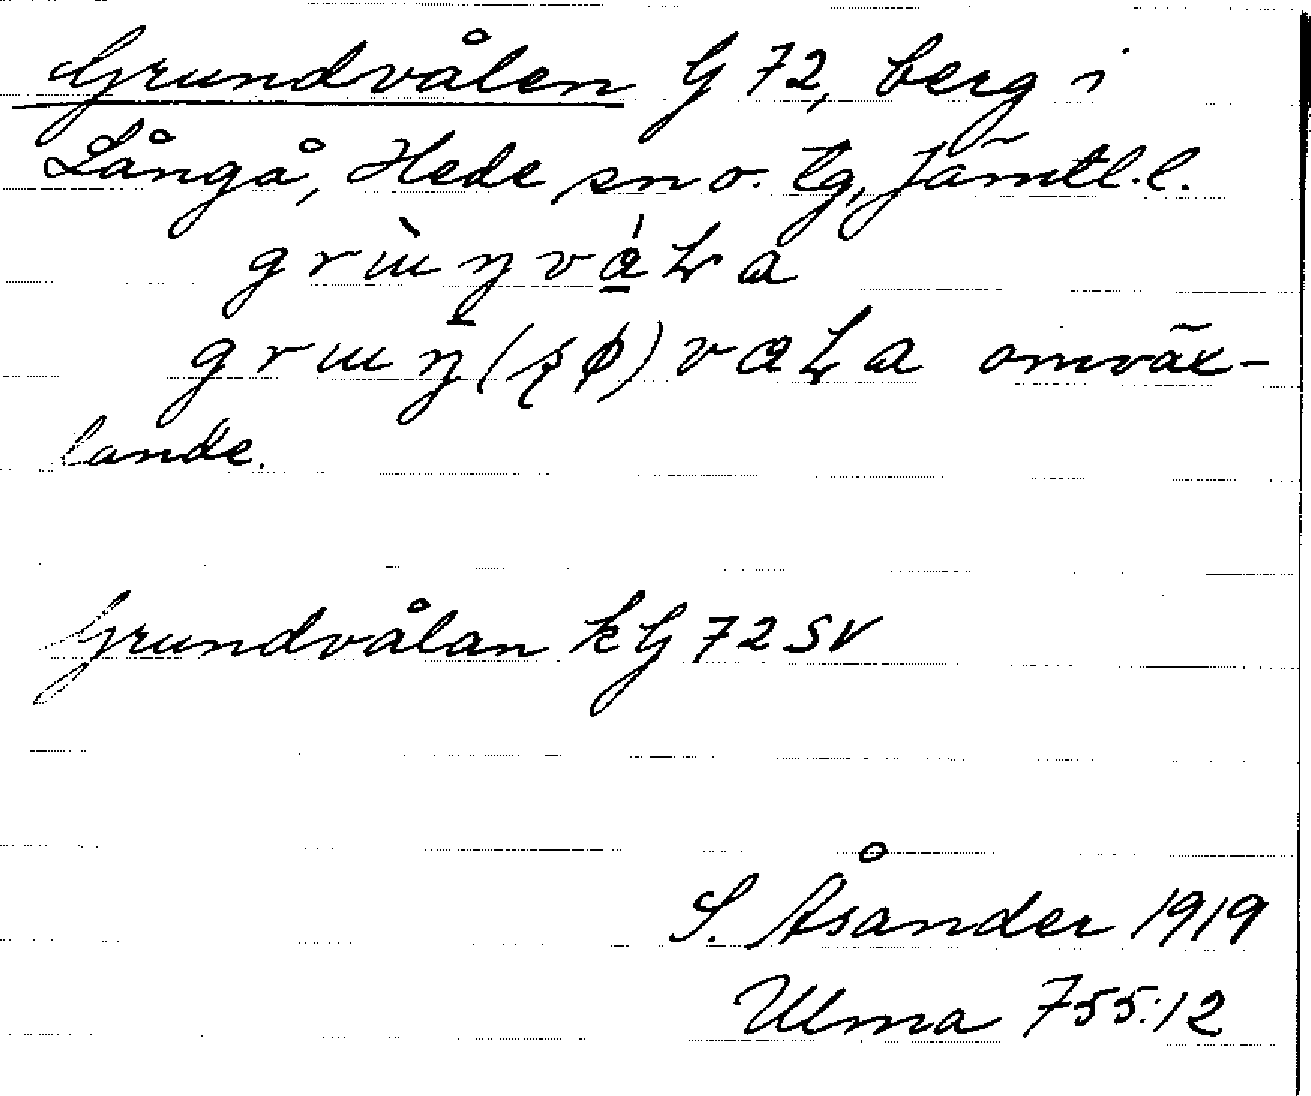 Grundvålen G 72, berg i
Långå, Hede sn o. tg, Jämtl. l.
omväx-
lande.
Grundvålan kG 72 SV
S. Åsander 1919
Ulma 755:12